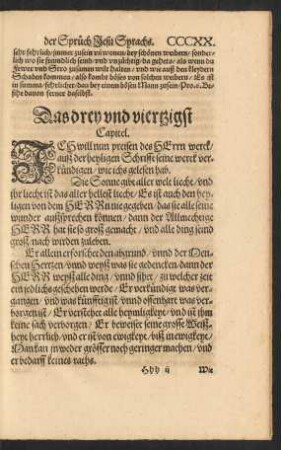 der Sprüch Jesu Syrachs. CCCXX.
sehr fehrlich/ immer zusein vñ wonen/ bey schönen weibern/ sonder-
lich wo sie freundtlich seind/ vnd vnzüchtig/ da gehets/ als wenn du
Fewer vnd Stro zusamen wilt halten/ vnd wie auß den kleydern
Schaben kommen/ also kombt böses von solchen weibern/ Es ist
in summa/ fehrlicher dan bey einem bösen Mann zusein/
daruon ferner daselbst.
Das drey vnd viertzigst
Capitel.
ICH will nun preisen des HErrn werck/
auß der heyligen Schrifft seine werck ver-
kündigen/ wie ichs gelesen hab.
Die Sonne gibt aller welt liecht/ vnd
jhr liecht ist das aller hellest liecht/ Es ist auch den hey-
ligen von dem HERRN nie gegeben/ das sie alle seine
wunder außsprechen können/ dann der Allmechtige
HERR hat sie so groß gemacht/ vnd alle ding seind
groß/ nach wirden zuloben.
Er allein erforschet den abgrund/ vnnd der Men-
schen Hertzen/ vnnd weyß was sie gedencken dann der
HERR weyß alle ding/ vnnd sihet/ zu welcher zeit
ein jedlichs geschehen werde/ Er verkündigt was ver-
gangen/ vnd was künfftig ist/ vnnd offenbart was ver-
borgen ist/ Er verstehet alle heymligkeyt/ vnd ist jhm
keine sach verborgen/ Er beweiset seine grosse Weiß-
heyt herrlich/ vnd er ist von ewigkeyt/ biß in ewigkeyt/
Man kan jn weder grösser noch geringer machen/ vnd
er bedarff keines raths.
Hhh ij Wie